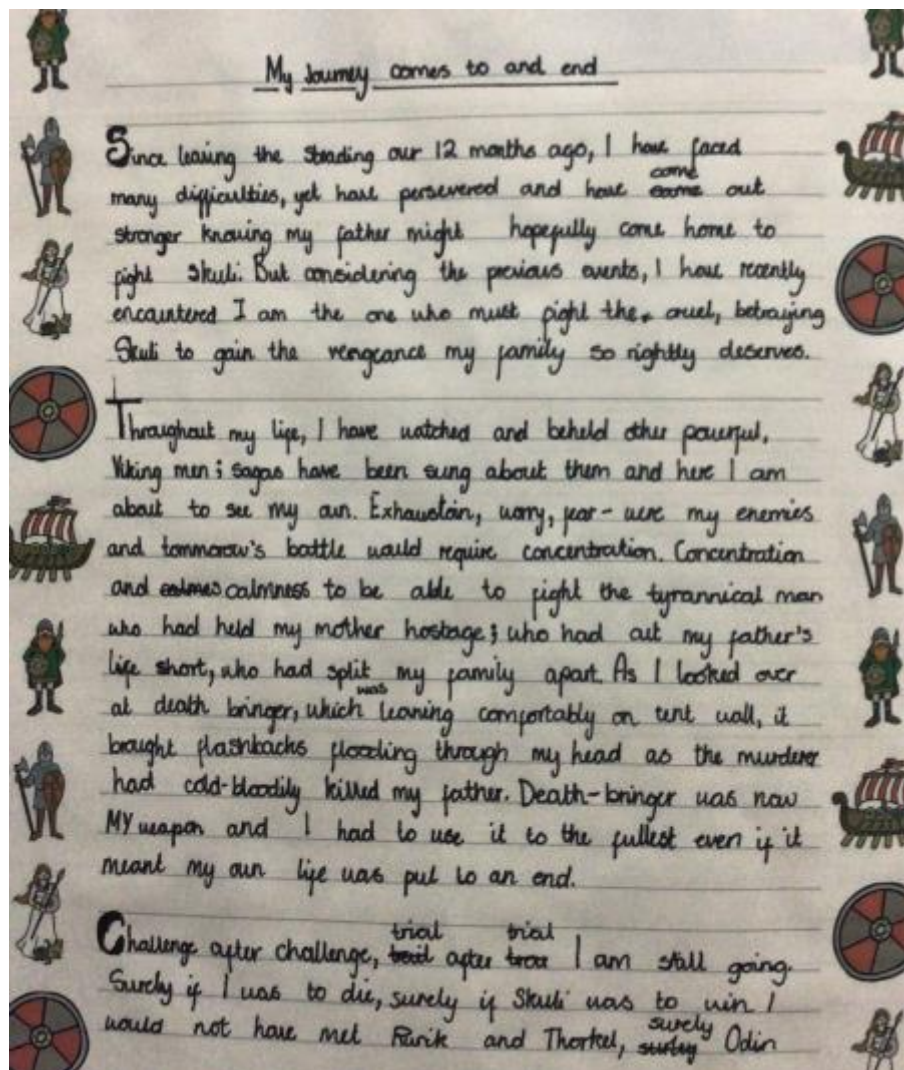 My Journey comes to and end
Since leaving the steading our 12 months ago, I have faced
come
many difficulties, yet have persevered and have came out
stronger knowing my father might hopefully come home to
fight Skuli. But considering the previous events, I have recently
encountered I am the one who must fight the cruel, betraying
Skuli to gain the vengeance my family so rightly deserves.
Throughout my life, I have watched and beheld other powerful,
Viking men; sagas have been sung about them and here I am
about to see my own. Exhaustoin, worry, fear - were my enemies
and tommorow's battle would require concentration. Concentration
and calmness to be able to fight the tyrannical man
who had held my mother hostage; who had cut my father's
life short, who had split my family apart. As I looked over
was
at death bringer, which leaning comfortably on tent wall, it
brought flashbacks flooding through my head as the murderer
had cold-bloodily killed my father. Death-bringer was now
MY weapon and I had to use it to the fullest even if it
meant my own life was put to an end.
trial trial
Challenge after challenge, after I am still going.
Surely if I was to die, surely if Skuli was to win I
surely
would not have met Rurik and Thorkel, Odin